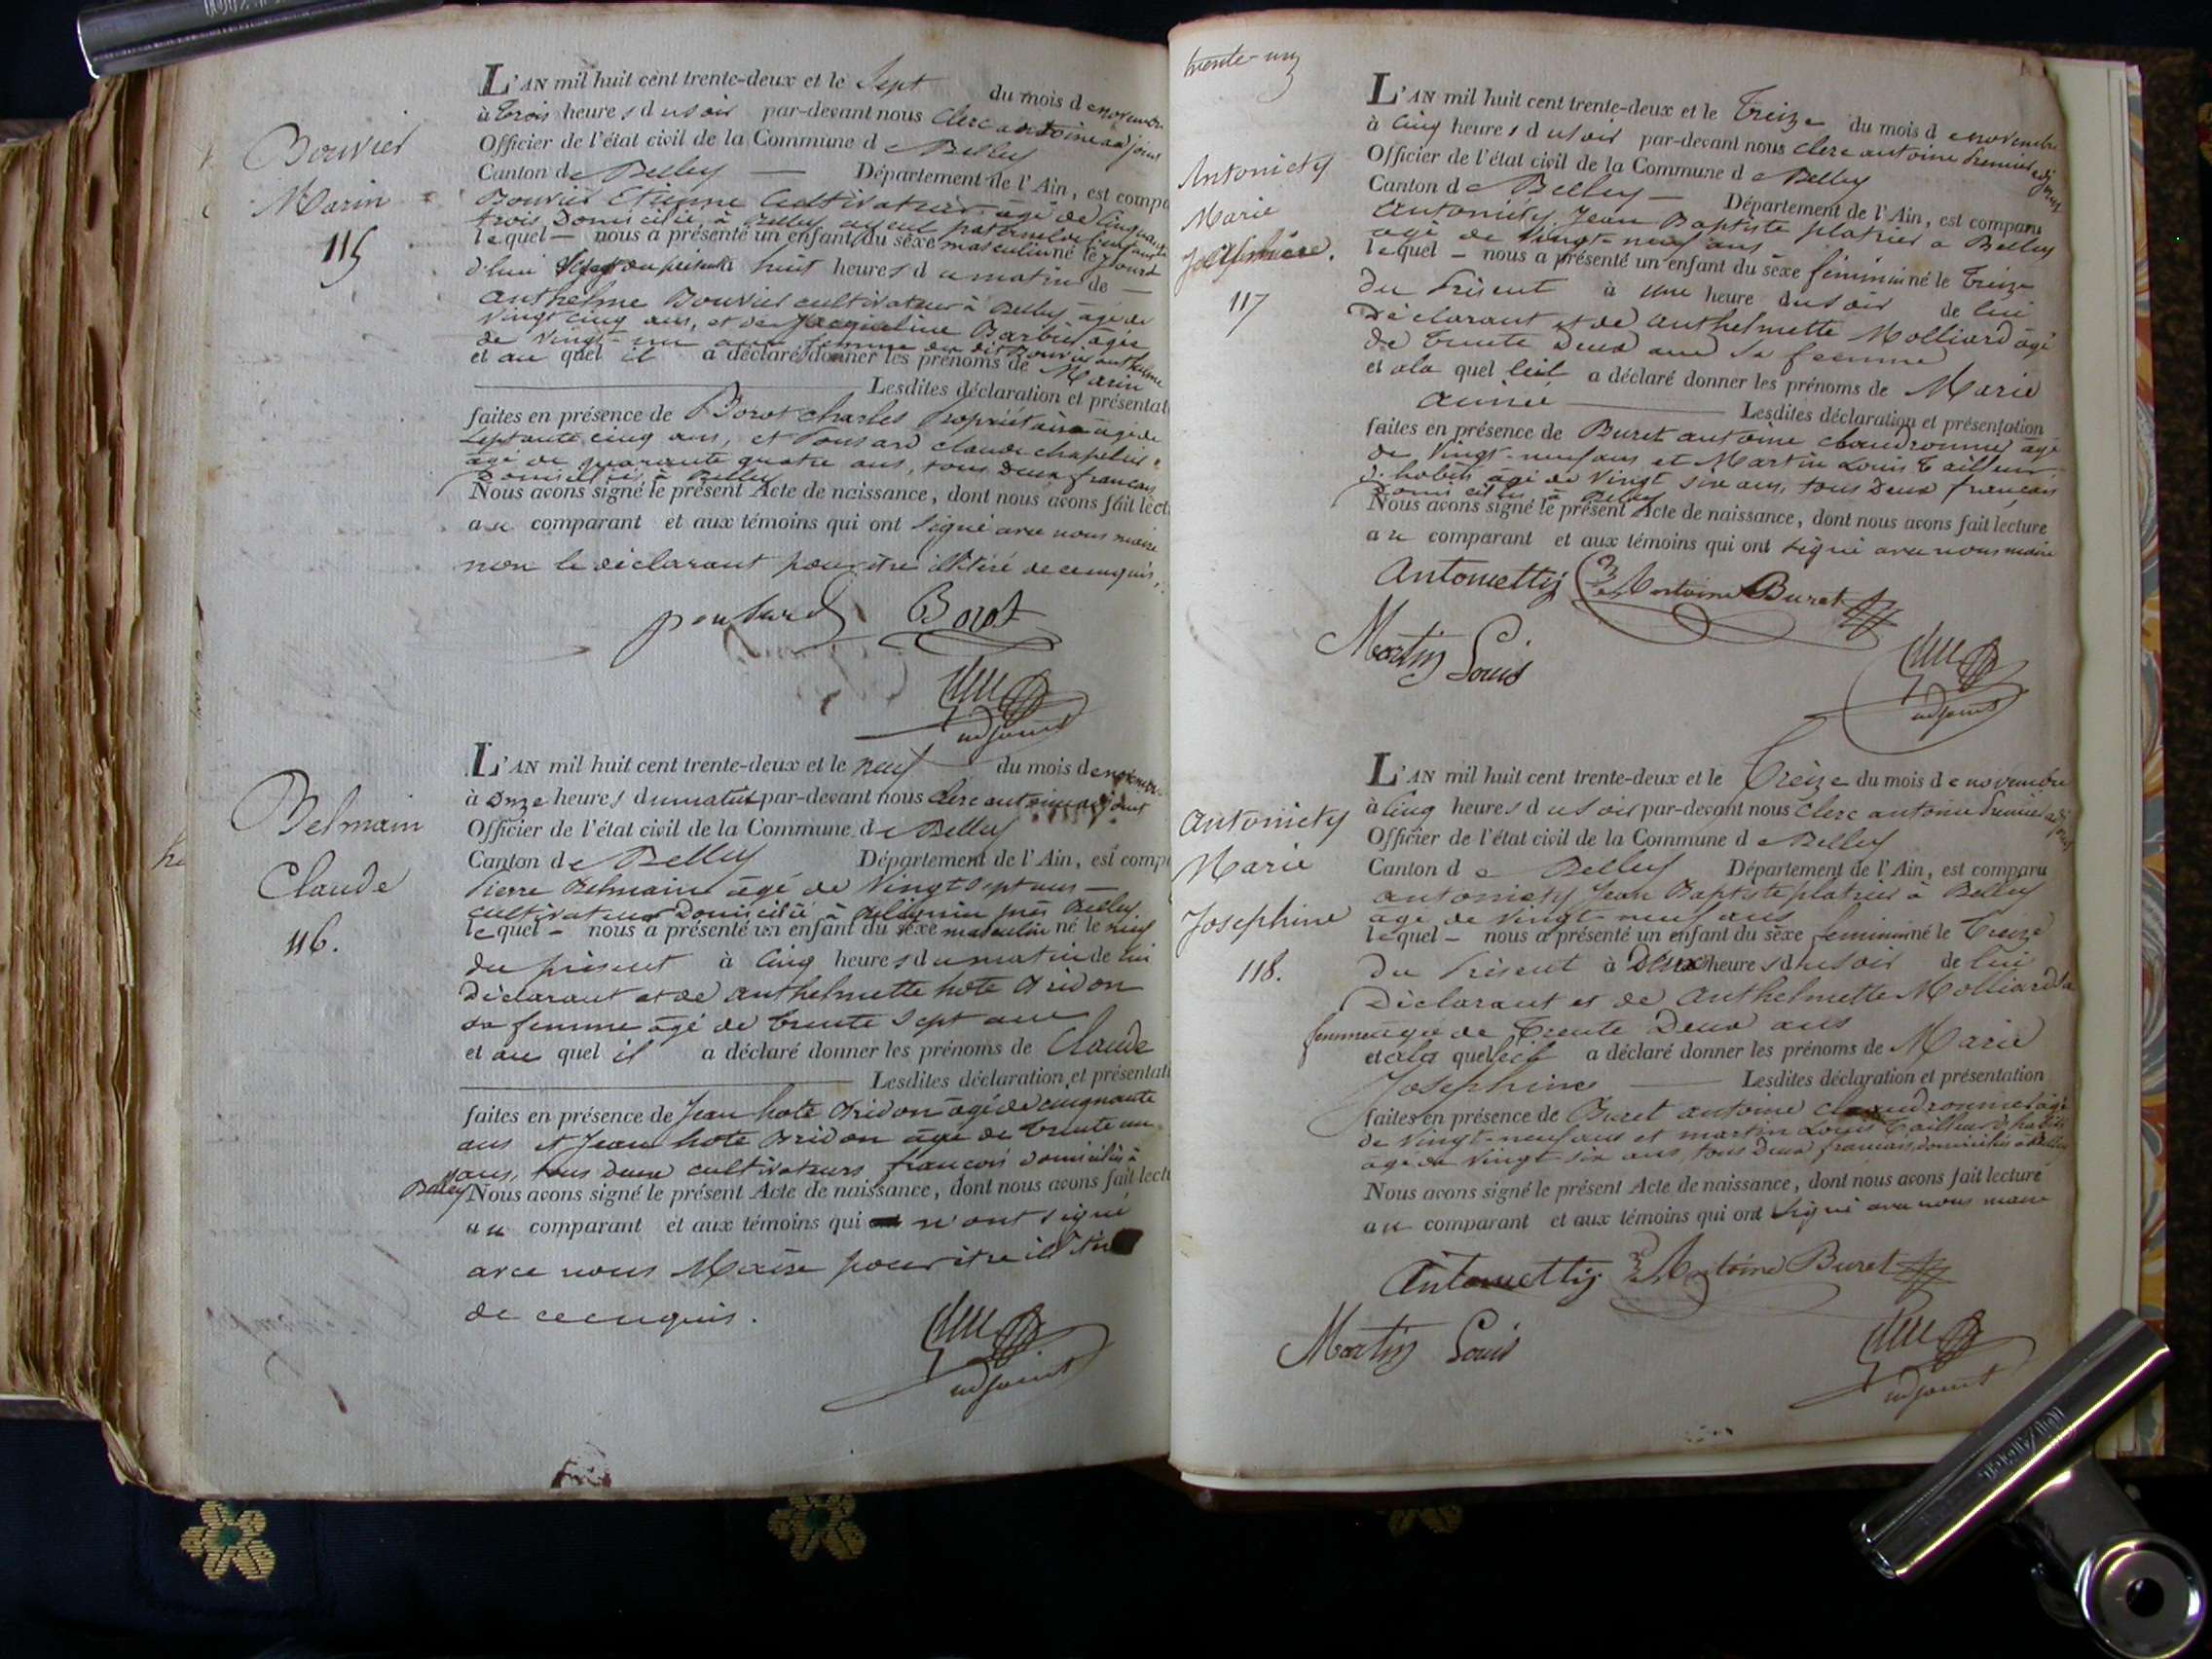 Bouvier
Marin
115
L'AN mil huit cent trente-deux et le Sept du mois de novembre
à trois heures du soir par-devant nous Clerc antoine adjoint
Officier de l'état civil de la Commune de Belley
Canton de Belley — Département de l'Ain, est compa
Bouvier Etienne Cultivateur âgé de Cinquante
trois Domicilié à Belley ayeul paternel de l'enfant
lequel — nous a présenté un enfant du sèxe masculin né le jourd
d'hui Sept du présent à huit heures du matin de —
Anthelme Bouvier cultivateur à Belley âgé de
Vingt cinq ans, et de Jacqueline Barbier âgée
de Vingt-un ans femme du dit Bouvier anthelme
et au quel il a déclaré donner les prénoms de Marin
Lesdites déclaration et présentat
faites en présence de Borot Charles Propriétaire âgé de
Septante cinq ans, et Ponsard Claude chapelier
âgé de quarante quatre ans, tous Deux français
Domiciliés à Belley
Nous avons signé le présent Acte de naissance, dont nous avons fait lect
au comparant et aux témoins qui ont signé avec nous maire
non le déclarant pour être illétéré de ce enquis.
ponsard Borot
Clerc
adjoint
Belmain
Claude
116.
L'AN mil huit cent trente-deux et le neuf du mois de novembre
à Onze heures du matin par-devant nous Clerc antoine adjoint
Officier de l'état civil de la Commune de Belley
Canton de Belley Département de l'Ain, est comp
Pierre Belmain âgé de Vingt Sept ans —
cultivateur Domicilié à près Belley
lequel — nous a présenté un enfant du sèxe masculin né le neuf
du présent à Cinq heures du matin de lui
Déclarant et de Anthelmette hote Bridon
sa femme âgé de trente Sept ans
et au quel il a déclaré donner les prénoms de Claude
Lesdites déclaration et présentati
faites en présence de Jean hote Bridon âgé de cinquante
ans et Jean hote Bridon âgé de trente un
ans, tous Deux cultivateurs français domiciliés à
Belley Nous avons signé le présent Acte de naissance, dont nous avons fait lect
au comparant et aux témoins qui n'ont signé
avec nous Maire pour être illétéré
de ce enquis.
Clerc
adjoint
trente-un
Antoniety
Marie
117
L'AN mil huit cent trente-deux et le Treize du mois de novembre
à Cinq heures du soir par-devant nous Clerc antoine Premier adjoint
Officier de l'état civil de la Commune de Belley
Canton de Belley — Département de l'Ain, est comparu
Antoniety Jean Baptiste platrier à Belley
âgé de Vingt-neuf ans
lequel — nous a présenté un enfant du sèxe féminin né le Treize
du Présent à Une heure du soir de lui
Déclarant et de Anthelmette Molliard âgé
de trente Deux ans sa femme
et a la quel leil a déclaré donner les prénoms de Marie
aimée Lesdites déclaration et présentation
faites en présence de Buret antoine chaudronnier âgé
de Vingt-neuf ans et Martin Louis Tailleur
d'habits âgé de Vingt six ans, tous Deux français
Domiciliés à Belley
Nous avons signé le présent Acte de naissance, dont nous avons fait lecture
au comparant et aux témoins qui ont signé avec nous maire
Antoniettij Antoine Buret
Martin Louis
Clerc
adjoint
Antoniety
Marie
Josephine
118.
L'AN mil huit cent trente-deux et le Treize du mois de novembre
à Cinq heures du soir par-devant nous Clerc antoine Premier adjoint
Officier de l'état civil de la Commune de Belley
Canton de Belley Département de l'Ain, est comparu
Antoniety Jean Baptiste platrier à Belley
âgé de Vingt-neuf ans
lequel — nous a présenté un enfant du sèxe feminin né le Treize
du Présent à Deux heures du soir de lui
Déclarant et de Anthelmette Molliard Sa
femme âgée de Trente Deux ans
et a la quel leil a déclaré donner les prénoms de Marie
Josephine Lesdites déclaration et présentation
faites en présence de Buret antoine chaudronnier âgé
de Vingt-neuf ans et martin Louis Tailleur d'habits
âgé de Vingt-six ans, tous Deux français, domiciliés à Belley
Nous avons signé le présent Acte de naissance, dont nous avons fait lecture
au comparant et aux témoins qui ont Signé avec nous maire
Antoniettij Antoine Buret
Martin Louis
Clerc
adjoint